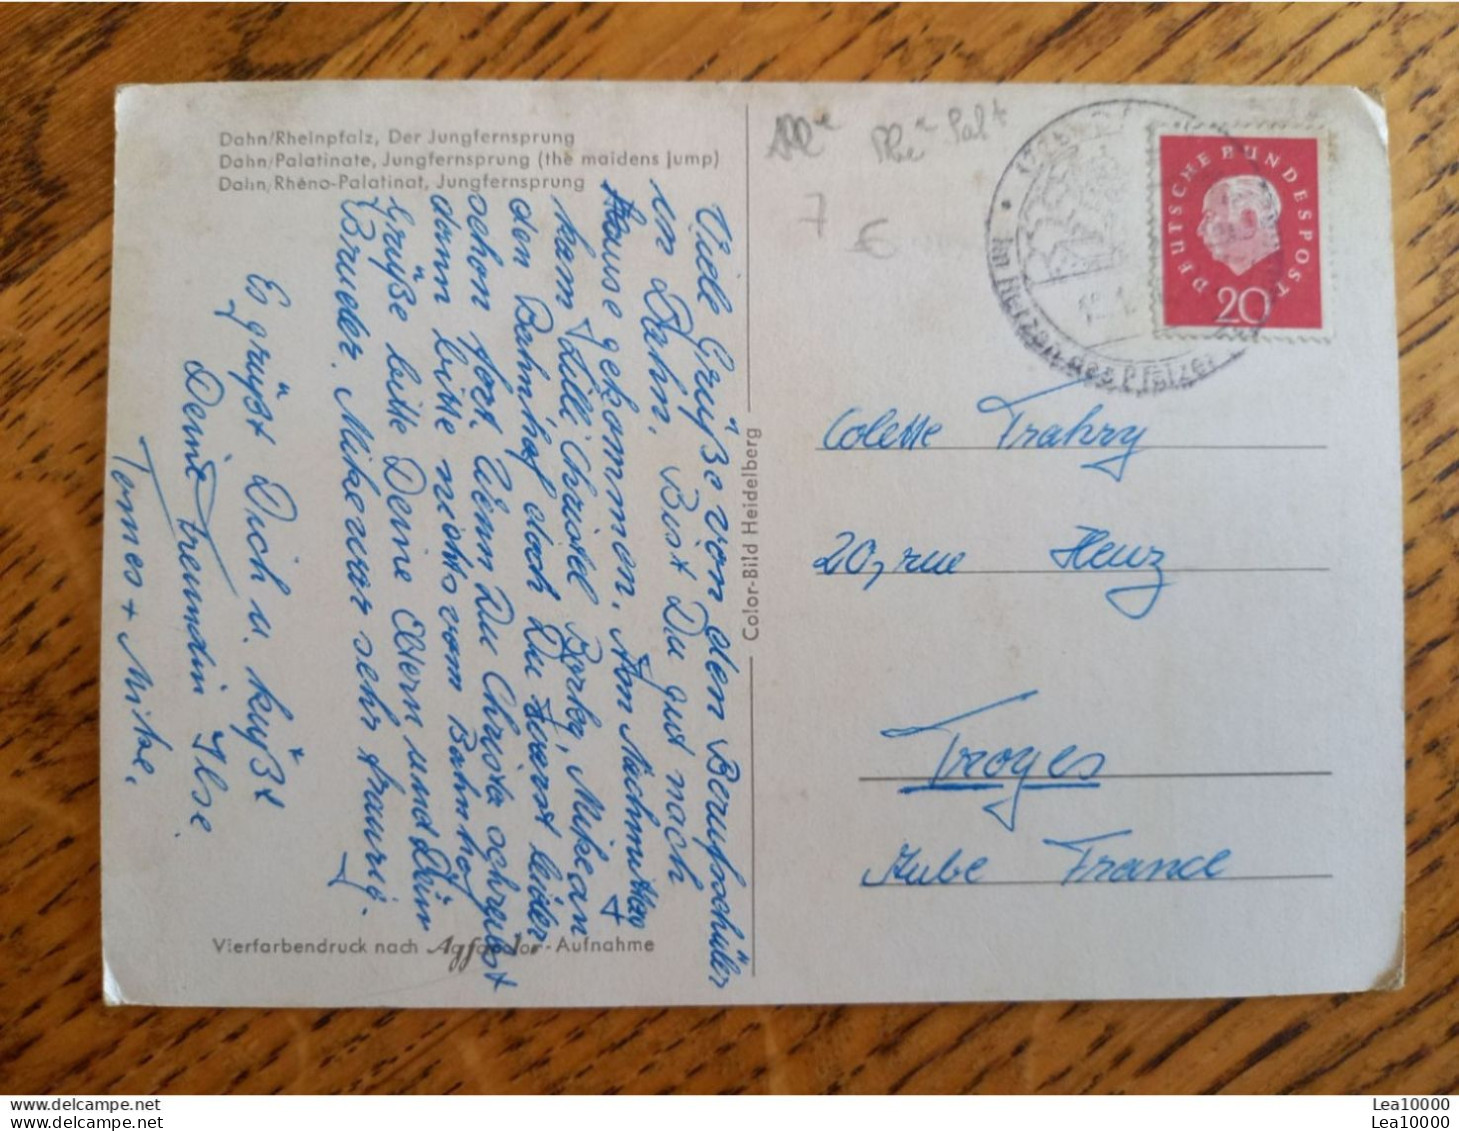 Dahn/Rheinpfalz, Der Jungfernsprung
Dahn/Palatinate, Jungfernsprung (the maidens jump)
Dahn/Rhéno-Palatinat, Jungfernsprung
Viele Grüße von den Berufsschüler
in Dahn. Bist Du gut nach
Hause gekommen. Am Nachmittag
kam Christel Mike an
den Bahnhof doch Du warst leider
schon fort. Wenn Du Christa schreibst
dann bitte nichts vom Bahnhof
Grüße bitte Deine Eltern und Dein
Bruder. Mike war sehr traurig.
Es grüßt Dich u. küßt
Deine Freundin Ilse.
+ Mike.
Vierfarbendruck nach Agfacolor-Aufnahme
Color-Bild Heidelberg
7
€
Im Herzen des Pfälzer
DEUTSCHE BUNDESPOST
20
Colette Trahry
20, rue Henz
Troyes
Aube France
Lea10000
www.delcampe.net
Lea10000
www.delcampe.net